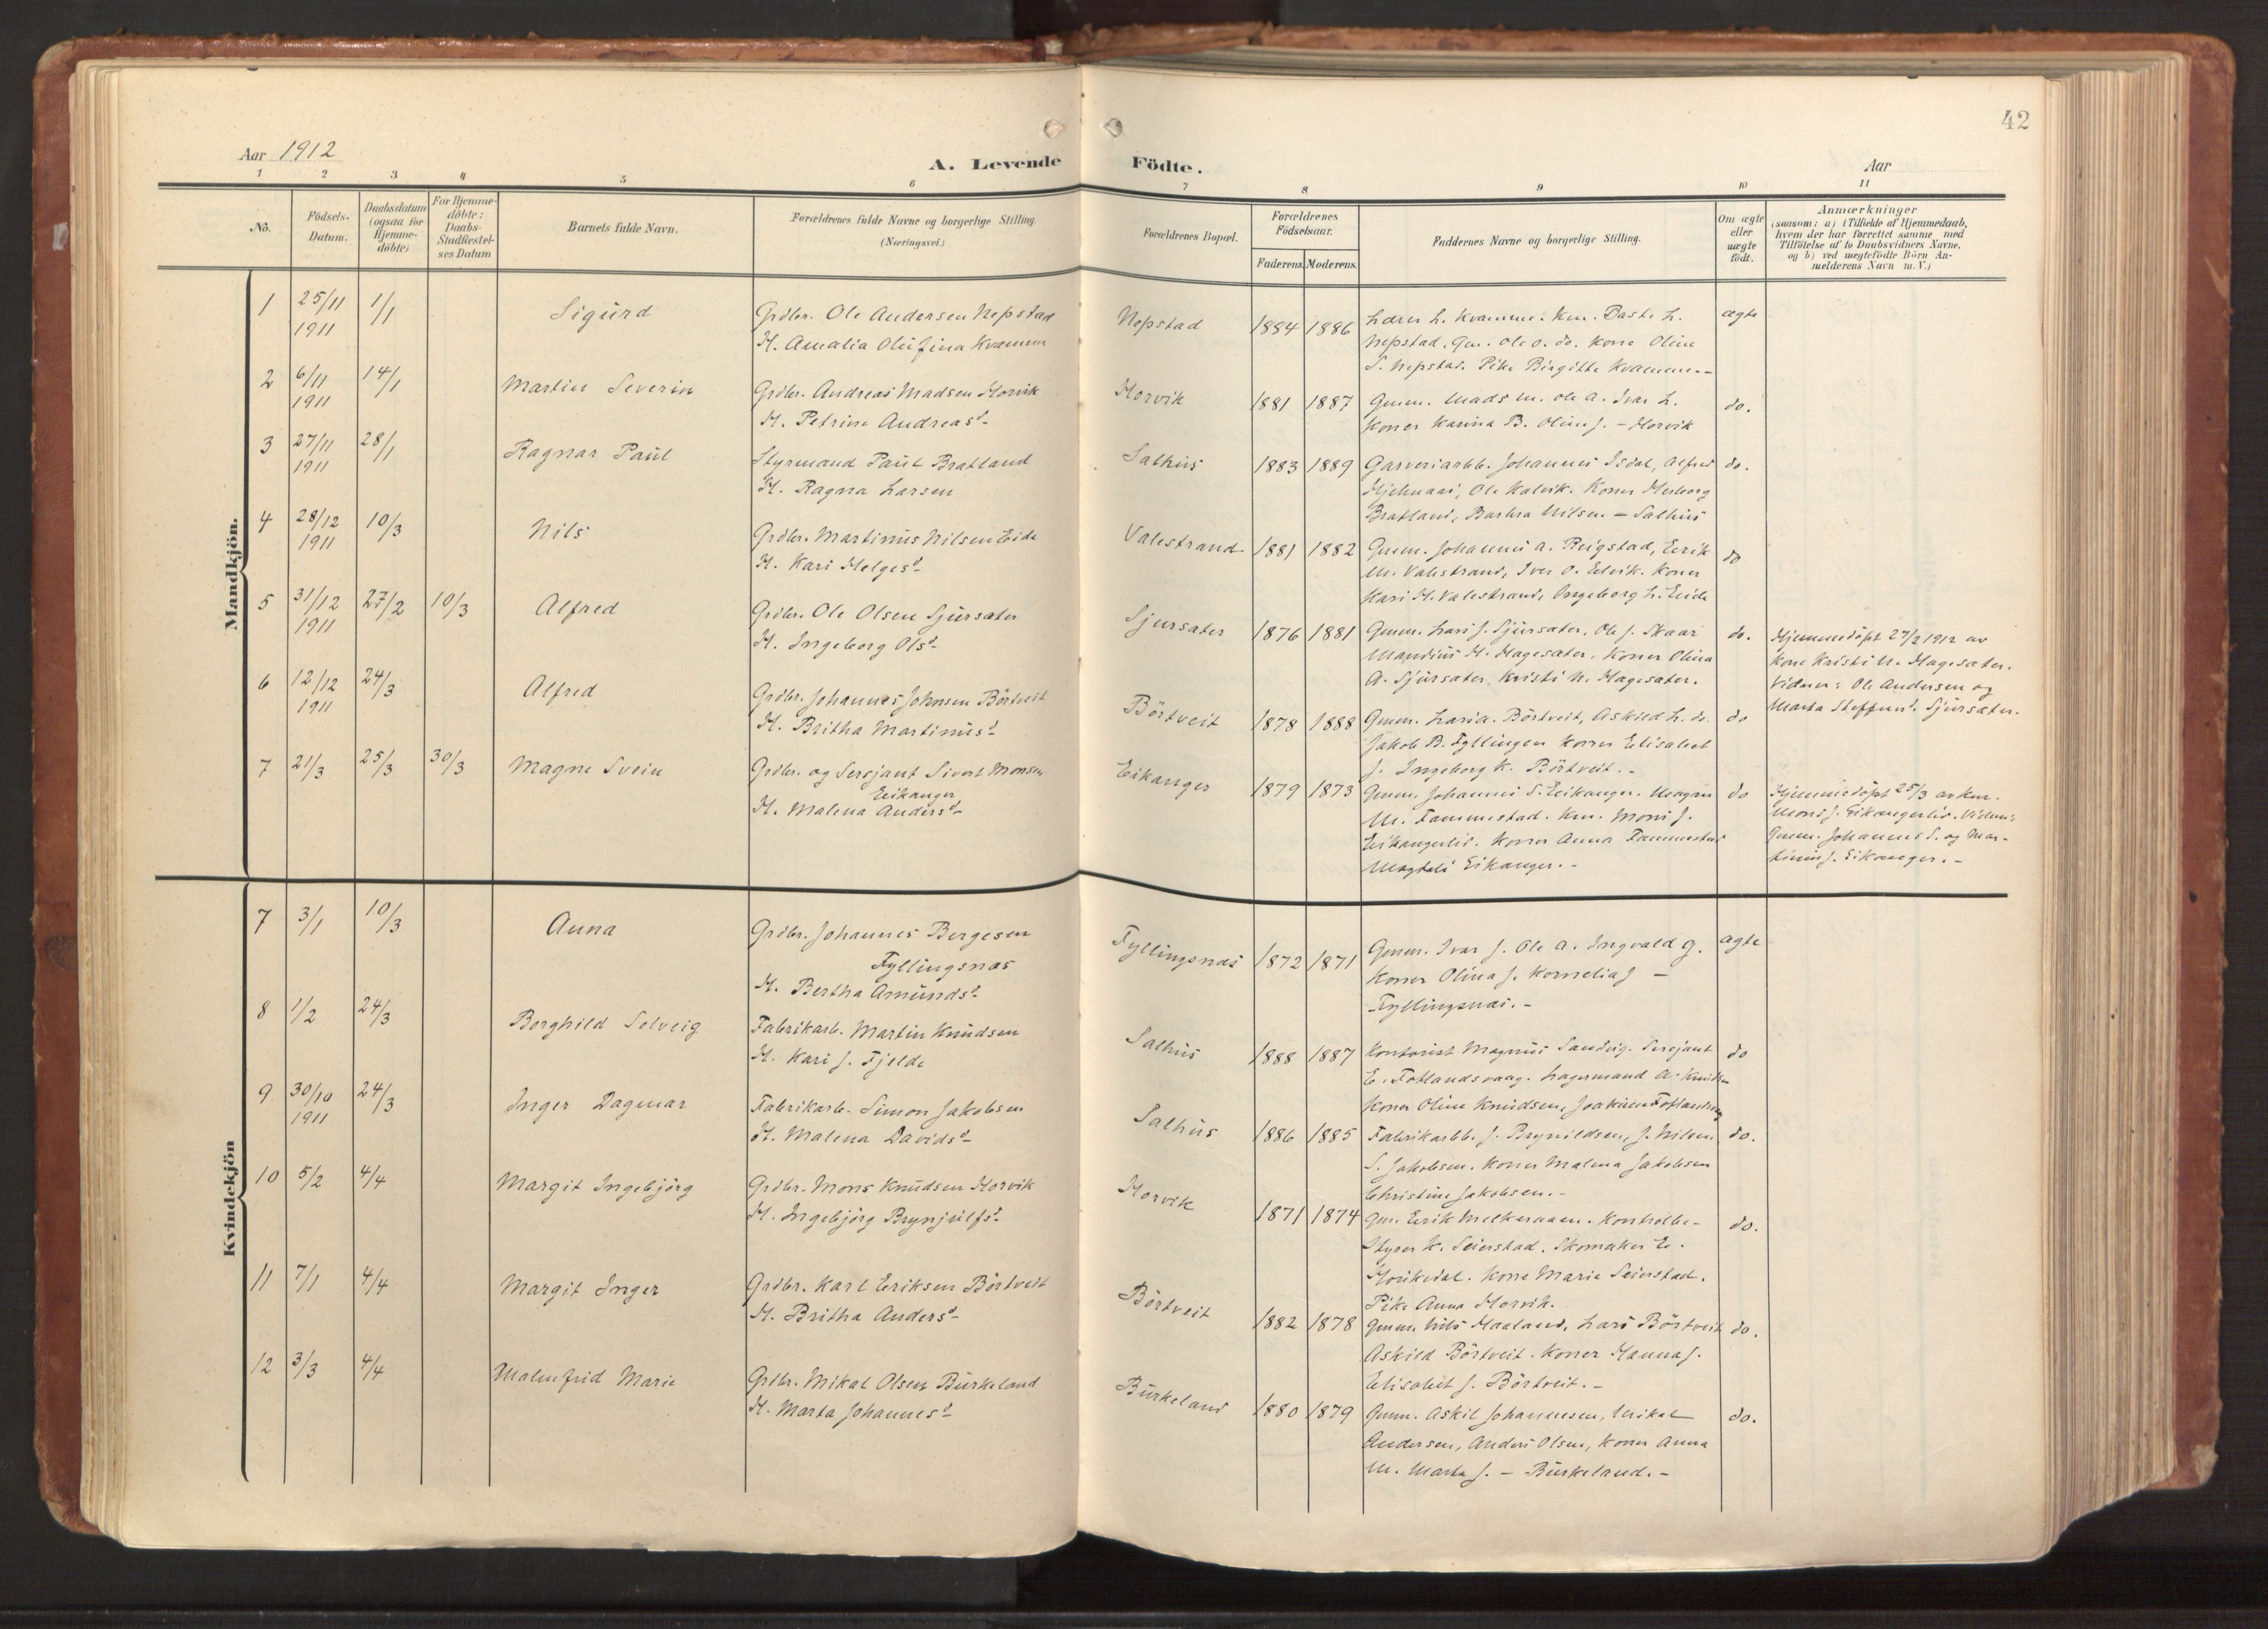 42
Aar 1912
A. Levende Födte.
Aar
1 2 3 4 5 6 7 8 9 10 11
No.
Födsels-
Datum.
Daabsdatum
(ogsaa for
Hjemme-
döbte)
For Hjemme-
döbte:
Daabs-
Stadfæstel-
ses Datum
Barnets fulde Navn.
Forældrenes fulde Navne og borgerlige Stilling.
(Næringsvei.)
Forældrenes Bopæl.
Forældrenes
Födselsaar.
Faderens. Moderens.
Faddernes Navne og borgerlige Stilling.
Om ægte
eller
uægte
födt.
Anmærkninger
(saasom: a) i Tilfælde af Hjemmedaab,
hvem der har forrettet samme med
Tilföielse af to Daabsvidners Navne.
og b) ved uægtefödte Börn An-
melderens Navn m. V.)
Mandkjön.
1 25/11 1911 1/1 Sigurd
Grdbr. Ole Andersen Nepstad
H. Amalia Olufina Kvamme
Nepstad 1884 1886
Lærer L. Kvamme. Km. Daste L.
Nepstad. Gm. Ole O. do. Kone Oline
S. Nepstad. Pike Birgitte Kvamme.-
ægte
2 6/11 1911 14/1 Martin Severin
Grdbr. Andreas Madsen Horvik
H. Petrine Andreasd.
Horvik 1881 1887
Gmm. Mads M. Ole A. Ivar L.
Koner Karina B. Oline J. - Horvik
do.
3 27/11 1911 28/1 Ragnar Paul
Styrmand Paul Bratland
H. Ragna Larsen
Salhus 1883 1889
Garveriarbb. Johannes Isdal, Alfred
Hjelmaas, Ole Kalvik. Koner Herborg
Bratland, Barbra Nilsen - Salhus
do.
4 28/12 1911 10/3 Nils
Grdbr. Martinus Nilsen Eide
H. Kari Helgesd.
Valestrand 1881 1882
Gmm. Johannes A. Reigstad, Eerik
M. Valestrand, Iver O. Eelvik. Koner
Kari H. Valestrand, Ingeborg L. Eeide
do
5 31/12 1911 27/2 10/3 Alfred
Grdbr. Ole Olsen Sjursæter
H. Ingeborg Olsd.
Sjursæter 1876 1881
Gmm. Lars J. Sjursæter, Ole J. Skaar
Mandius H. Hagesæter, Koner Olina
A. Sjursæter, Kristi N. Hagesæter.
do.
Hjemmedöpt 27/2 1912 av
Kone Kristi N. Hagesæter.
Vidner: Ole Andersen og
Marta Steffensd. Sjursæter.
6 12/12 1911 24/3 Alfred
Grdbr. Johannes Johnsen Börtveit
H. Britha Martinusd.
Börtveit 1878 1888
Gmm. Lars A. Börtveit, Askild L. do.
Jakob B. Fyllingen Koner Elisabet
J. Ingeborg K. Börtveit.-
do
7 21/3 25/3 30/3 Magne Svein
Grdbr. og Sersjant Sivert Monsen
Eeikanger
H. Malena Andersd.
Eikanger 1879 1873
Gmm. Johannes S. Eeikanger. Magne
M. Fammestad. Km. Mons J.
Eeikangerlid. Koner Anna Fammestad
Magdeli Eikanger.-
do
Hjemmedöpt 25/3 av Km.
Mons J. Eikangerlid. Vidner:
Gmm. Johannes S. og Mar-
tinus J. Eikanger.-
Kvindekjön
7 3/1 10/3 Anna
Grdbr. Johannes Bergesen
Fyllingsnæs
H. Bertha Amundsd.
Fyllingsnæs 1872 1871
Gmm. Ivar J. Ole A. Ingvald G.
Koner Olina J. Kornelia J -
Fyllingsnæs.-
ægte
8 1/2 24/3 Borghild Solveig
Fabrikarb. Martin Knudsen
H. Kari J. Fjelde
Salhus 1888 1887
Kontorist Magnus Sandvig. Sersjant
E. Fotlandsvaag. Lagermand A. Knudsen
Koner Oline Knudsen, Joakime Fotlandsvaag
do
9 30/10 1911 24/3 Inger Dagmar
Fabrikarb. Simon Jakobsen
H. Malena Davidsd.
Salhus 1886 1885
Fabrikarbb. J. Brynildsen, J. Nilsen
S. Jakobsen. Koner Malena Jakobsen
Christine Jakobsen.-
do.
10 5/2 4/4 Margit Ingebjörg
Grdbr. Mons Knudsen Horvik
H. Ingebjörg Brynjulfsd.
Horvik 1871 1874
Gm. Eerik Melkeraaen. Kontrolbe-
styrer K. Seierstad. Skomaker E.
Kone Marie Seierstad.
Pike Anna Horvik.
do.
11 7/1 4/4 Margit Inger
Grdbr. Karl Eriksen Börtveit
H. Britha Andersd.
Börtveit 1882 1878
Gmm. Nils Haaland, Lars Börtveit
Askild Börtveit. Koner Hanna J.
Elisabet J. Börtveit.-
do.
12 3/3 4/4 Malmfrid Marie
Grdbr. Mikal Olsen Burkeland
H. Marta Johannesd.
Burkeland 1880 1879
Gmm. Askil Johannesen, Mikal
Andersen, Anders Olsen, Koner Anna
M. Marta J. - Burkeland.-
do.